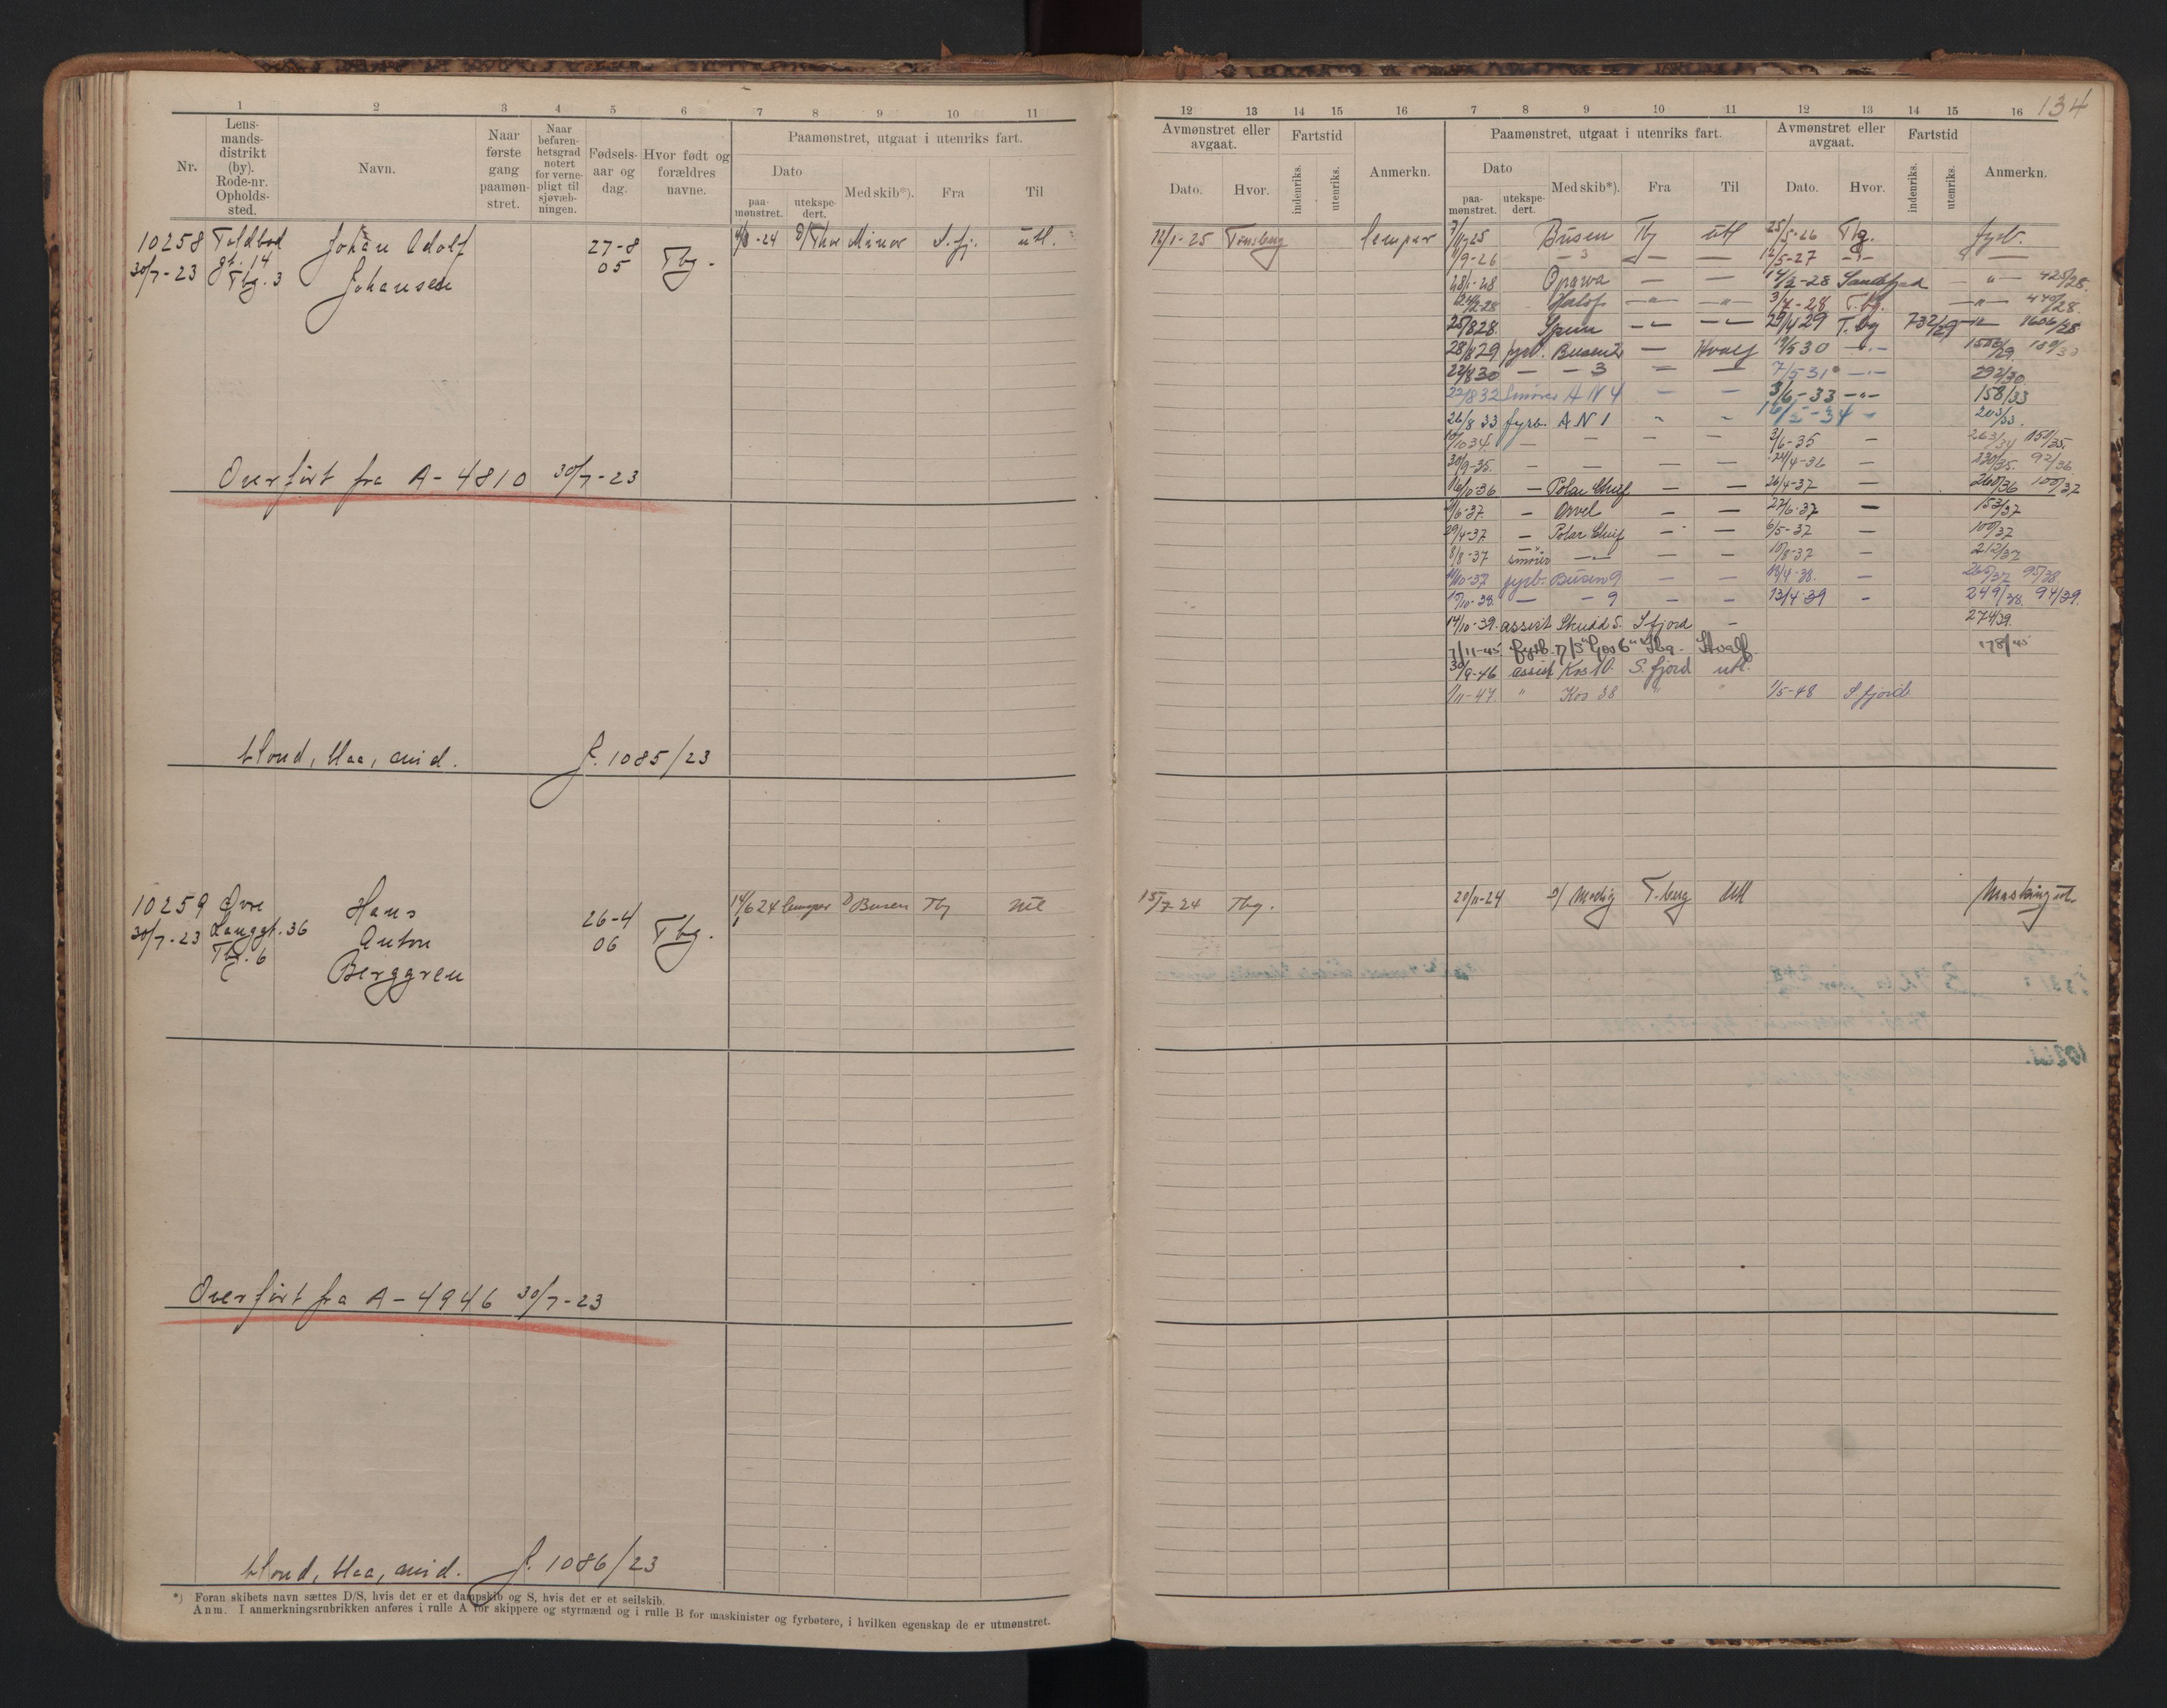 134
1 2 3 4 5 6 7 8 9 10 11
Nr.
Lens-
mands-
distrikt
(by).
Rode-nr.
Opholds-
sted.
Navn.
Naar
første
gang
paamøn-
stret.
Naar
befaren-
hetsgrad
notert
for verne-
pligt til
sjøvæb-
ningen.
Fødsels-
aar og
dag.
Hvor født og
forældres
navne.
Paamønstret, utgaat i utenriks fart.
Dato
paa-
mønstret.
utekspe-
dert.
Med skib*).
Fra
Til
10258 Toldbod
gt. 14
30/7-23 Tbg. 3
Johan Adolf
Johansen
27-8
05
Tbg.
-24 D/ Thor Minor S.fj. utl.
Overført fra A-4810 30/7-23
blond, blaa, mid. J. 1085/23
10259 Øvre
30/7-23 Langgt. 36
Tbg. 6
Hans
Anton
Berggren
26-4
06
Tbg.
14/6 24 lemper D Busen Tbg utl
Overført fra A-4946 30/7-23
blond, blaa, mid. J. 1086/23
*) Foran skibets navn sættes D/S, hvis det er et dampskib og S, hvis det er et seilskib.
Anm. I anmerkningsrubrikken anføres i rulle A for skippere og styrmænd og i rulle B for maskinister og fyrbøtere, i hvilken egenskap de er utmønstret.
12 13 14 15 16 7 8 9 10 11 12 13 14 15 16
Avmønstret eller
avgaat.
Dato.
Hvor.
Fartstid
indenriks.
utenriks.
Anmerkn.
Paamønstret, utgaat i utenriks fart.
Dato
paa-
mønstret.
utekspe-
dert.
Med skib*).
Fra
Til
Avmønstret eller
avgaat.
Dato.
Hvor.
Fartstid
indenriks.
utenriks.
Anmerkn.
12/1-25 Tønsberg lemper
7/11 25 Busen Tbg utl 25/5-26 Tbg. fyrb.
1/9-26 — 3 — — 12/5-27 —"— —
28/1-28 Oprawa — — 14/2-28 Sandefjord — " — 425/28.
—"— —"— 3/7-28 T.bg. —"— 440/28.
25/8 28. Spun —"— —"— 29/4 29 T.bg 732/29 —"— 1606/28
28/8 29. fyrb. Busen 2 — Hvalf 19/5 30 —"— 150/30
22/8 30 — — 3 — — 7/5-31 —"— 292/30
22/8 32 smører A N 4 — — 3/6-33 —"— 158/33
26/8 33 fyrb. A N 1 " " 16/5-34 " 203/33.
10/10 34. — — — — 3/6-35 — 263/34 151/35
30/9-35. — — — — 24/4-36 — 230/35. 92/36
16/10-36 — Polar Chief — — 26/4-37 — 260/36 100/37
— Orvel — — 27/6-37 — 153/37
29/4-37 — Polar Chief — — 6/5-37 — 100/37
8/8-37 smører —"— — — 10/8-37 — 212/37
11/10-37 fyrb. Busen 9 — — 19/4-38. — 265/37 95/38
17/10-38. — — 9 — — 13/4-39 — 249/38. 94/39.
14/10-39. assist Skudd 5. S.fjord — 274/39.
7/11-45 fyrb. Tbg. Hvalf. 178/45
30/9-46 assist Kos 10. S.fjord utl.
1/11-47. " Kos 38 " " 1/5-48 S.fjord
15/7-24 Tbg. 20/11-24 D/ Modig T.berg Utl Maskinist.